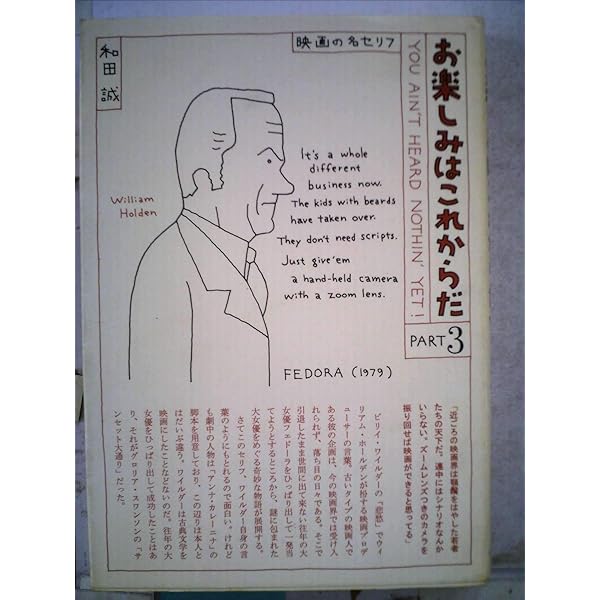 お楽しみはこれからだ
YOU AIN'T HEARD NOTHIN' YET!
PART 3
映画の名セリフ
和田誠
William
Holden
It's a whole
different
business now.
The kids with beards
have taken over.
They don't need scripts.
Just give 'em
a hand-held camera
with a zoom lens.
FEDORA (1979)
「近ごろの映画界は顎鬚をはやした若者
たちの天下だ。連中にはシナリオなんか
いらない。ズームレンズつきのカメラを
振り回せば映画ができると思ってる」
ビリイ・ワイルダーの「悲愁」でウィ
リアム・ホールデンが扮する映画プロデ
ューサーの言葉。古いタイプの映画人で
ある彼の企画は、今の映画界では受け入
れられず、落ち目の日々である。そこで
引退したまま世間に出て来ない往年の大
女優フェドーラをひっぱり出して一発当
てようとするところから、謎に包まれた
大女優をめぐる奇妙な物語が展開する。
さてこのセリフ、ワイルダー自身の言
葉のようにもとれるので面白い。けれど
も劇中の人物は「アンナ・カレーニナ」の
脚本を用意しており、この辺りは本人と
はだいぶ違う。ワイルダーは古典文学を
映画にしたことなどないのだ。往年の大
女優をひっぱり出して成功したことはあ
り、それがグロリア・スワンソンの「サ
ンセット大通り」だった。